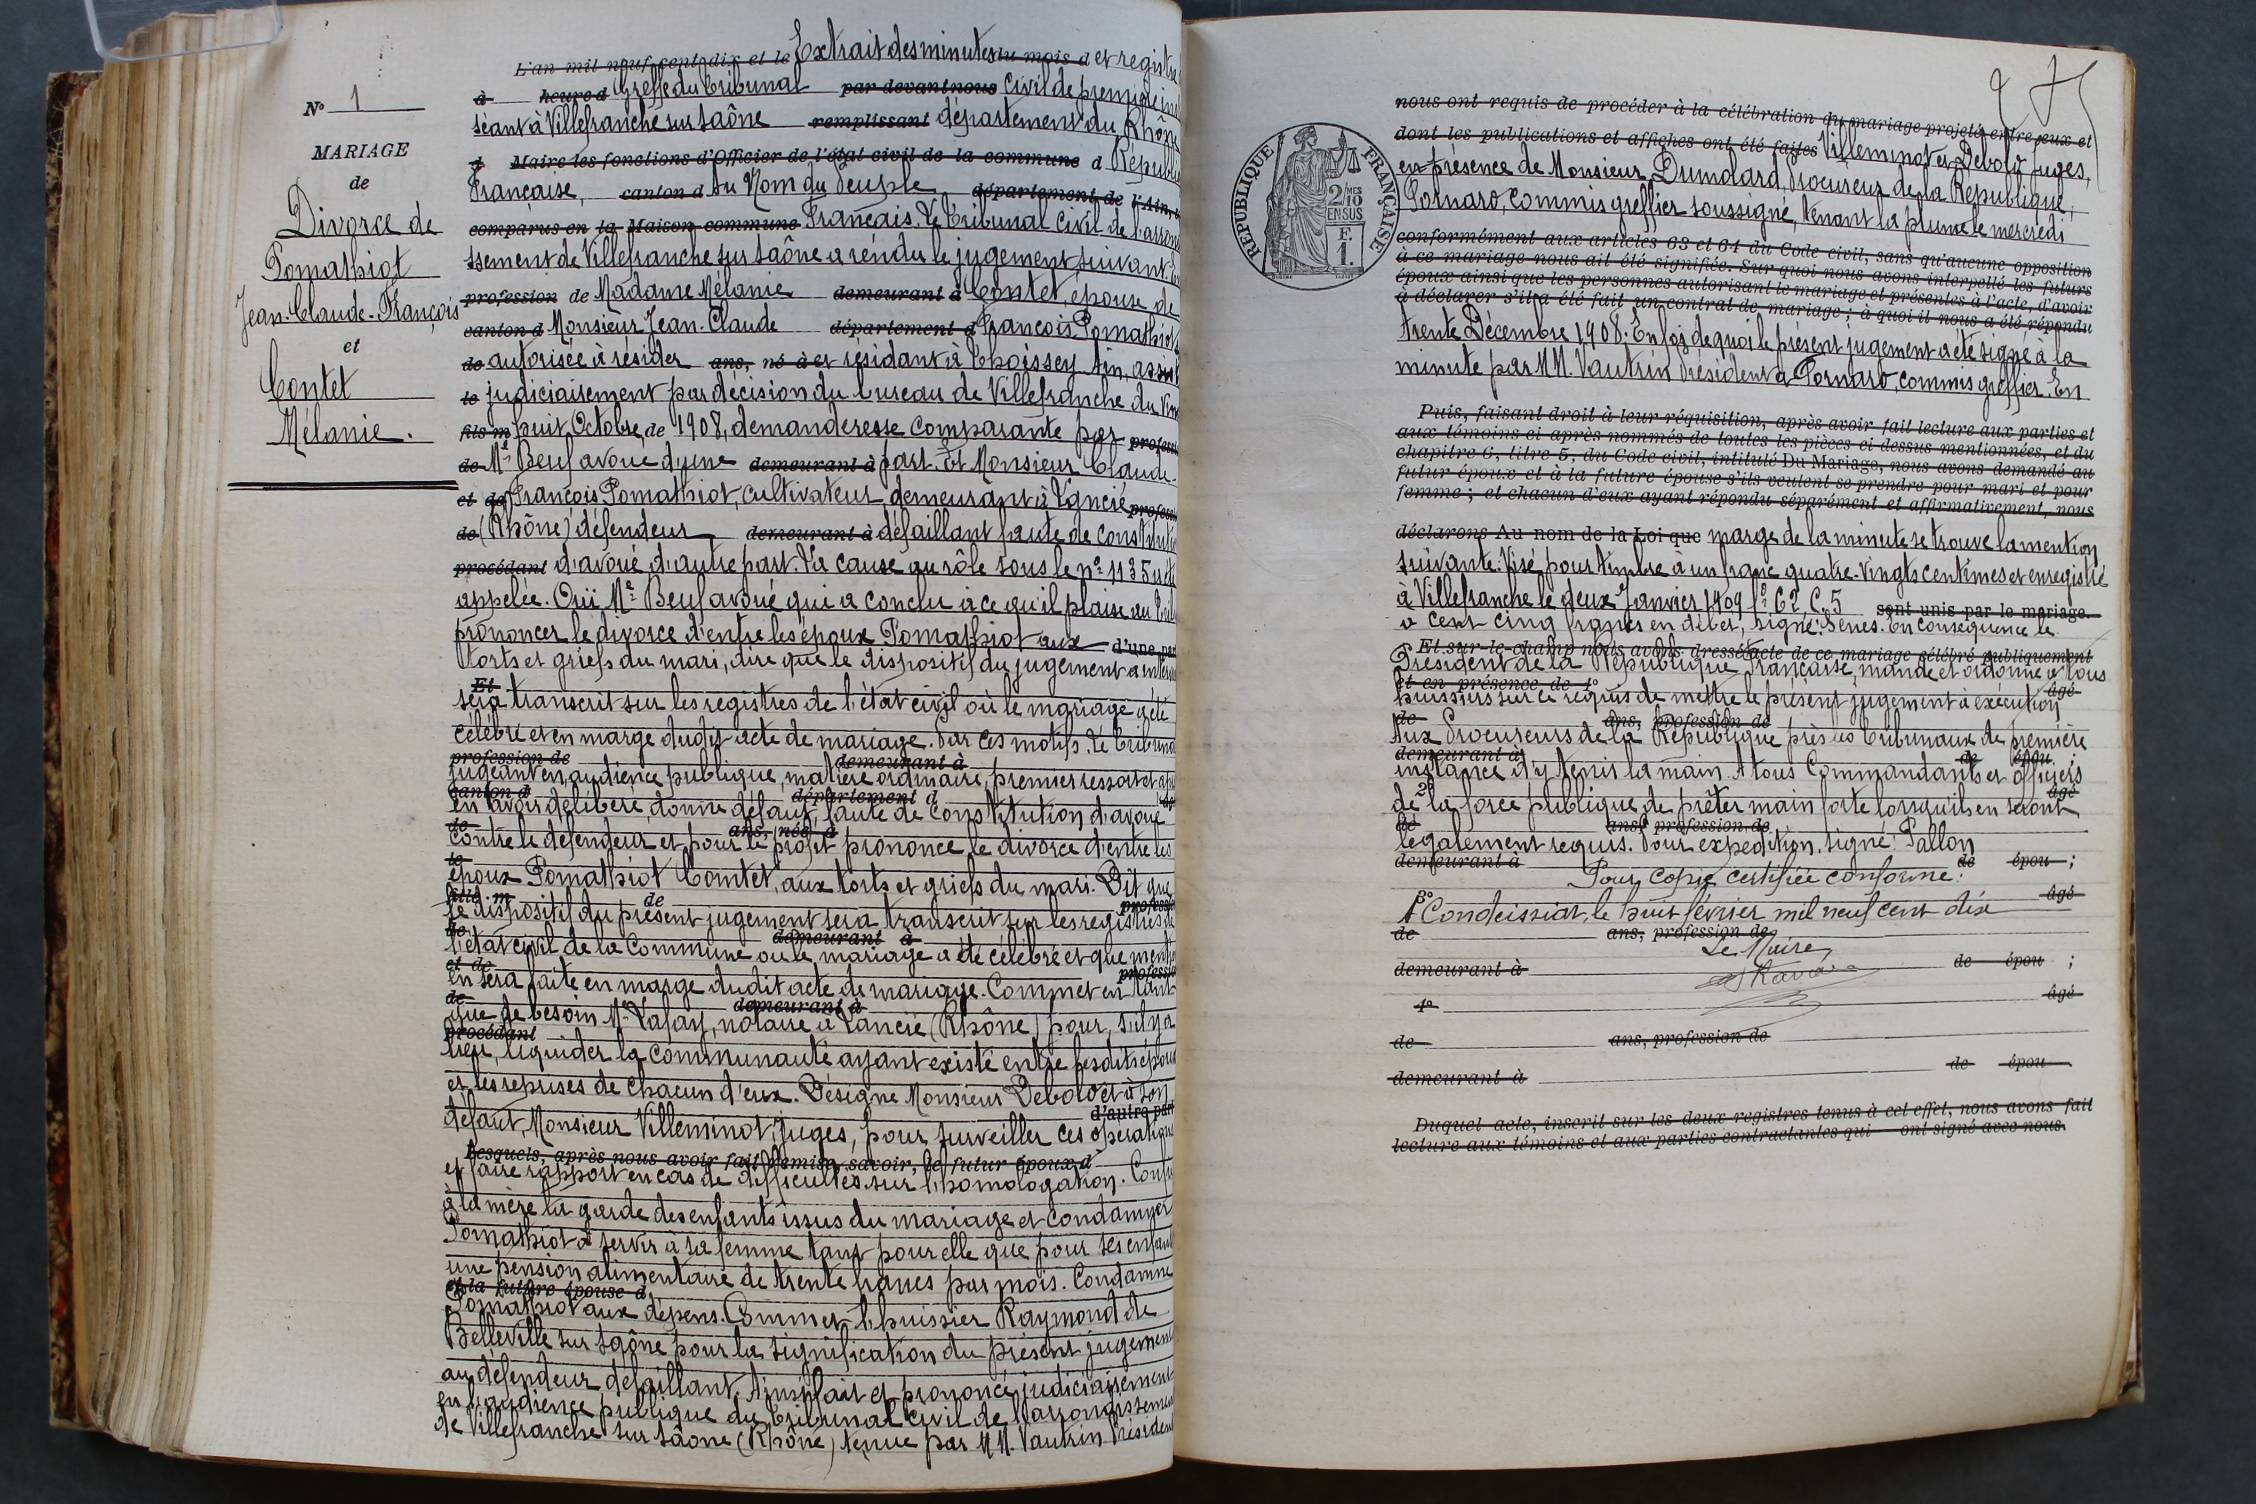 N° 1
MARIAGE
de
Divorce de
Pomathiot
Jean-Claude-François
et
Contet
Mélanie.
L'an mil neuf cent dix et le Extrait des minutes du mois d et registre
à heure d Greffe du Tribunal par devant nous Civil de première
séant à Villefranche sur Saône remplissant département du Rhône
d Maire les fonctions d'Officier de l'état civil de la commune d Républi
Française, canton d Au Nom du Peuple département de l'Ain,
comparus en la Maison commune Français. Le Tribunal Civil de l'arron
ssement de Villefranche sur Saône a rendu le jugement suivant
profession de Madame Mélanie demeurant à Contet, épouse de
canton d Monsieur Jean-Claude département d François Pomathiot
de autorisée à résider ans, né à et résidant à Thoissey Ain, assist
le judiciairement par décision du bureau de Villefranche du vin
fils m huit Octobre de 1908, demanderesse comparante par profess
de Me Beuf avoué d'une demeurant à part. Et Monsieur Claude-
et de François Pomathiot, cultivateur demeurant à Lancié profess
de (Rhône) défendeur demeurant à défaillant faute de constitu
procédant d'avoué d'autre part. La cause au rôle sous le n° 1135
appelée. Ouï Me Beuf avoué qui a conclu à ce qu'il plaise au
prononcer le divorce d'entre les époux Pomathiot aux d'une par
torts et griefs du mari, dire que le dispositif du jugement à interv
Et
sera transcrit sur les registres de l'état civil où le mariage a été
célébré et en marge dudit acte de mariage. Par ces motifs. Le Tribuna
profession de demeurant à
jugeant en audience publique, matière ordinaire, premier ressort et
canton d département d
en avoir délibéré, donne défaut, faute de constitution d'avoué
de ans, née à
contre le défendeur et pour le profit prononce le divorce d'entre les
le
époux Pomathiot Contet, aux torts et griefs du mari. Dit que
fille m de profess
le dispositif du présent jugement sera transcrit sur les registres de
de demeurant à
l'état civil de la Commune où le mariage a été célébré et que ment
et de profess
en sera faite en marge dudit acte de mariage. Commet en tant
de demeurant à
que de besoin Me Lafay, notaire à Lancié (Rhône) pour, s'il y a
procédant
lieu, liquider la communauté ayant existé entre lesdits époux
et les reprises de chacun d'eux. Désigne Monsieur Debold et à son
d'autre part
défaut, Monsieur Villeminot, juges, pour surveiller ces opérations
Lesquels, après nous avoir fait remise, savoir, le futur époux d
et faire rapport en cas de difficultés sur l'homologation. Confi
à la mère la garde des enfants issus du mariage et condamner
Pomathiot à servir à sa femme tant pour elle que pour ses enfants
une pension alimentaire de trente francs par mois. Condamne
et la future épouse d
Pomathiot aux dépens. Commet l'huissier Raymond de
Belleville sur Saône pour la signification du présent jugement
au défendeur défaillant. Ainsi fait et prononcé judiciairement
en l'audience publique du Tribunal Civil de l'arrondissement
de Villefranche sur Saône (Rhône) tenue par MM. Vautrin Président
nous ont requis de procéder à la célébration du mariage projeté entre eux et
dont les publications et affiches ont été faites Villeminot et Debold juges,
en présence de Monsieur Dumolard, Procureur de la République,
Pornaro, Commis greffier soussigné, tenant la plume le mercredi
conformément aux articles 63 et 64 du Code civil, sans qu'aucune opposition
à ce mariage nous ait été signifiée. Sur quoi nous avons interpellé les futurs
époux ainsi que les personnes autorisant le mariage et présentes à l'acte, d'avoir
à déclarer s'il a été fait un contrat de mariage ; à quoi il nous a été répondu
RÉPUBLIQUE FRANÇAISE
2/10 MES
EN SUS
F.
1.
trente Décembre 1908. En foi de quoi le présent jugement a été signé à la
minute par MM. Vautrin Président & Pornaro, commis greffier. En
Puis, faisant droit à leur réquisition, après avoir fait lecture aux parties et
aux témoins ci-après nommés de toutes les pièces ci-dessus mentionnées, et du
chapitre 6, titre 5, du Code civil, intitulé Du Mariage, nous avons demandé au
futur époux et à la future épouse s'ils veulent se prendre pour mari et pour
femme ; et chacun d'eux ayant répondu séparément et affirmativement, nous
déclarons Au nom de la Loi que marge de la minute se trouve la mention
suivante. Visé pour timbre à un franc quatre-vingts centimes et enregistré
à Villefranche le deux Janvier 1909 f° 62 C. 5 sont unis par le mariage.
à cent cinq francs en débet, signé: Sènes. En conséquence le
Et sur-le-champ nous avons dressé acte de ce mariage célébré publiquement
Président de la République Française, mande et ordonne à tous
et en présence de 1° âgé
huissiers sur ce requis de mettre le présent jugement à exécution
de ans, profession de
Aux Procureurs de la République près les Tribunaux de première
demeurant à de épou ;
instance d'y tenir la main. A tous Commandants et officiers
2° âgé
de la force publique de prêter main forte lorsqu'ils en seront
de ans, profession de
légalement requis. Pour expédition, signé: Pallon
demeurant à de épou ;
Pour copie certifiée conforme:
3° âgé
A Condeissiat, le huit février mil neuf cent dix
de ans, profession de
Le Maire,
demeurant à de épou ;
4° âgé
de ans, profession de
demeurant à de épou
Duquel acte, inscrit sur les deux registres tenus à cet effet, nous avons fait
lecture aux témoins et aux parties contractantes qui ont signé avec nous.